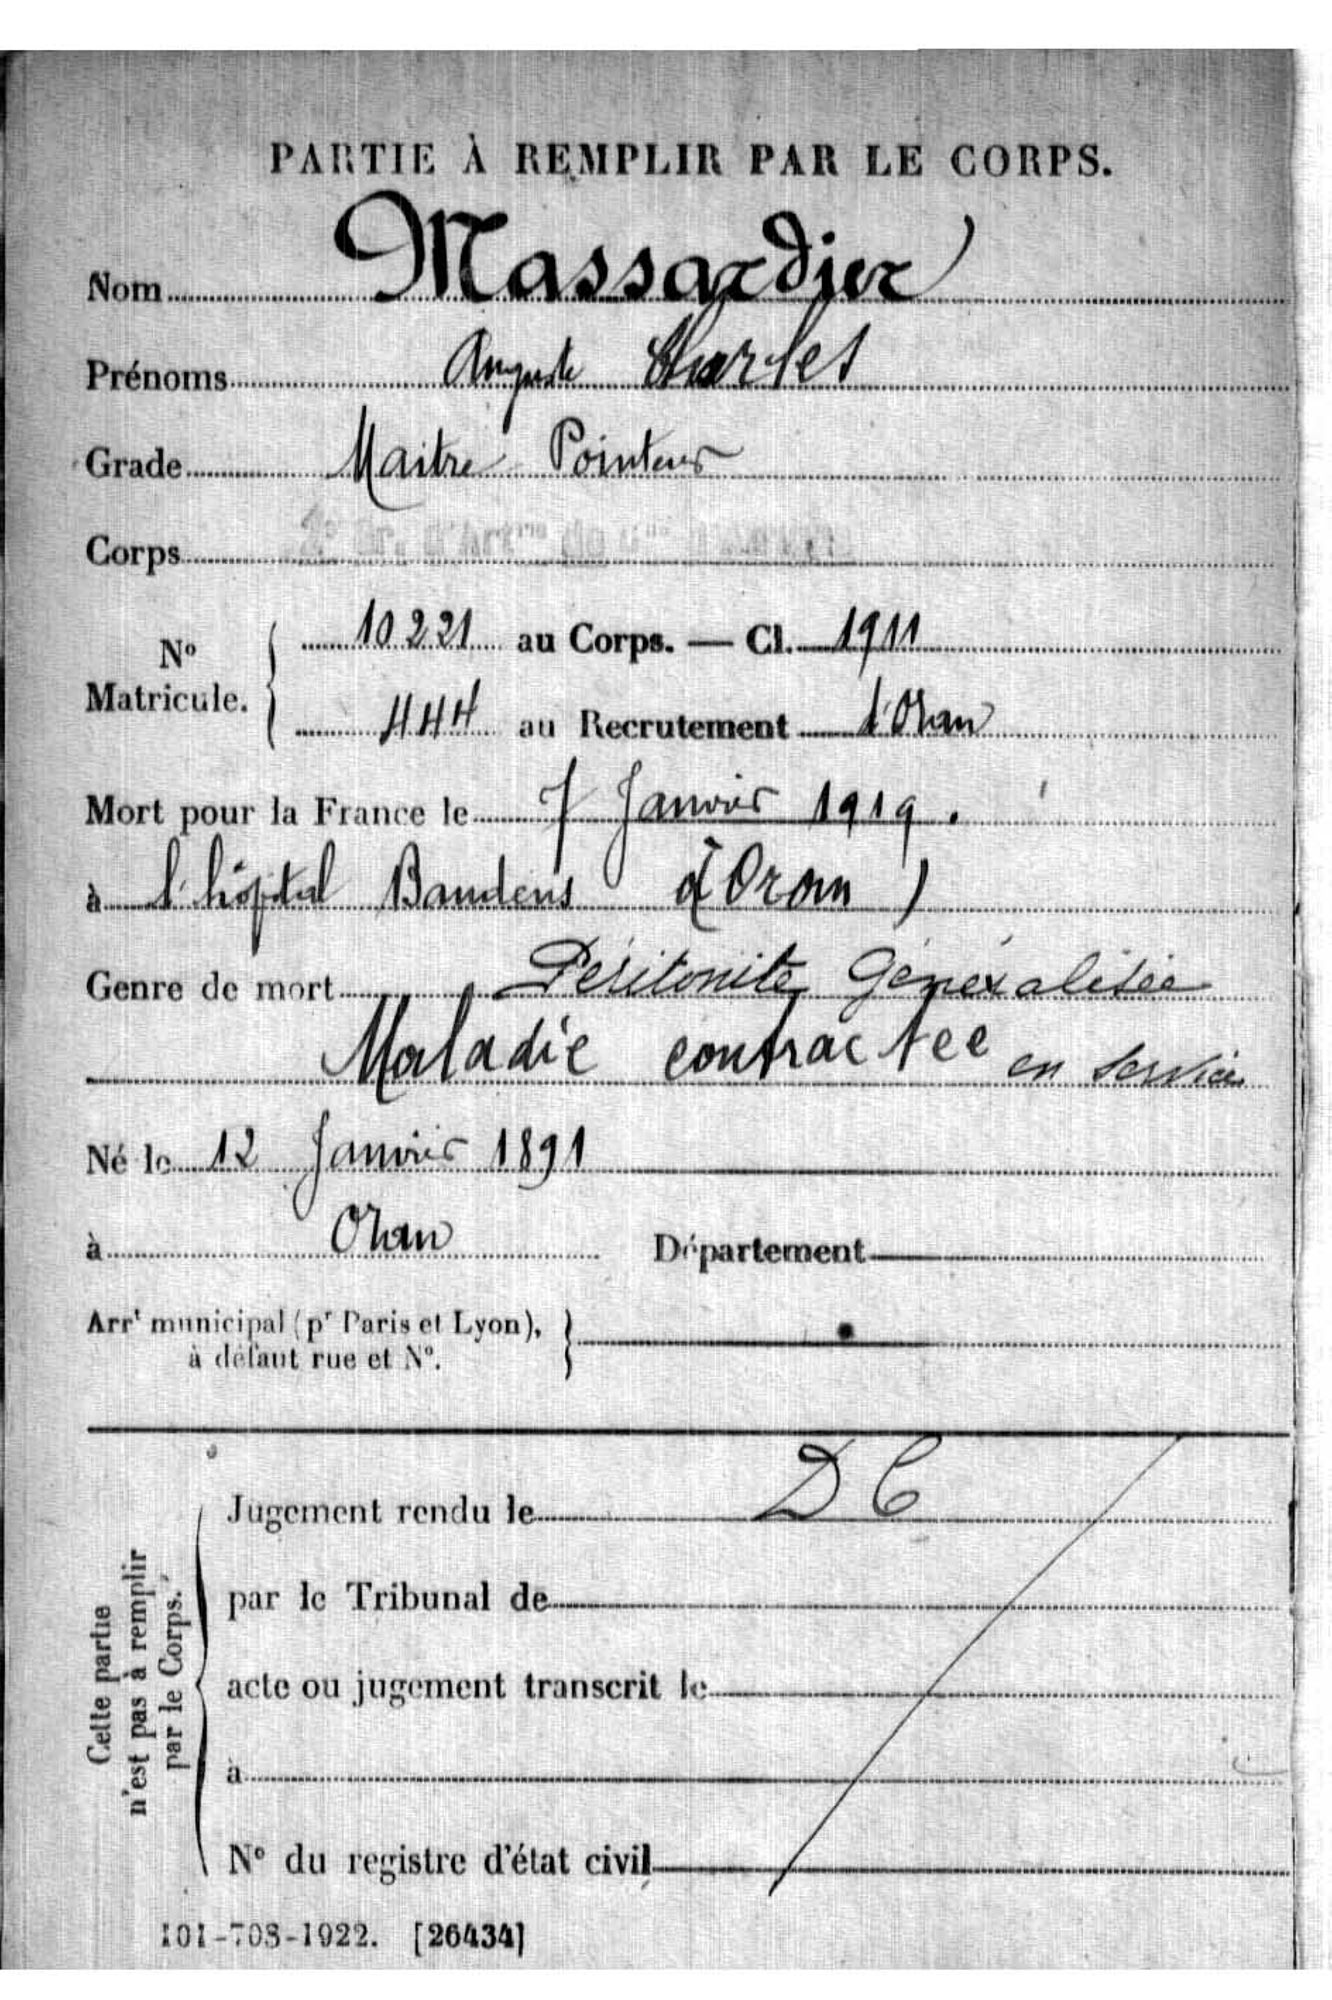 PARTIE À REMPLIR PAR LE CORPS.
Nom Massardier
Prénoms Auguste Charles
Grade Maitre Pointeur
Corps
N° Matricule. 10221 au Corps. — Cl. 1911
444 au Recrutement d'Oran
Mort pour la France le 7 Janvier 1919.
à l'hôpital Baudens (à Oran)
Genre de mort Péritonite Généralisée
Maladie contractée en service
Né le 12 Janvier 1891
à Oran Département
Arrt municipal (pr Paris et Lyon),
à défaut rue et N°.
Cette partie
n'est pas à remplir
par le Corps.
Jugement rendu le DC
par le Tribunal de
acte ou jugement transcrit le
à
N° du registre d'état civil
101-708-1922. [26434]